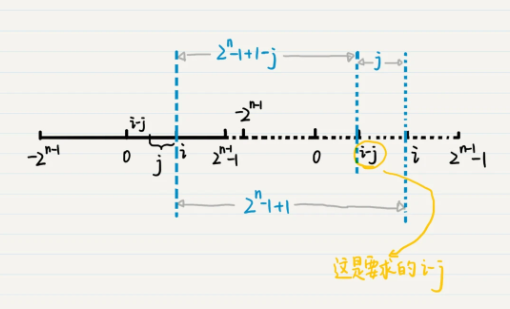 2ⁿ-1+1-j
j
-2ⁿ⁻¹
i-j
-2ⁿ⁻¹
0
j
i
2ⁿ⁻¹-1
0
i-j
i
2ⁿ⁻¹-1
2ⁿ-1+1
这是要求的i-j